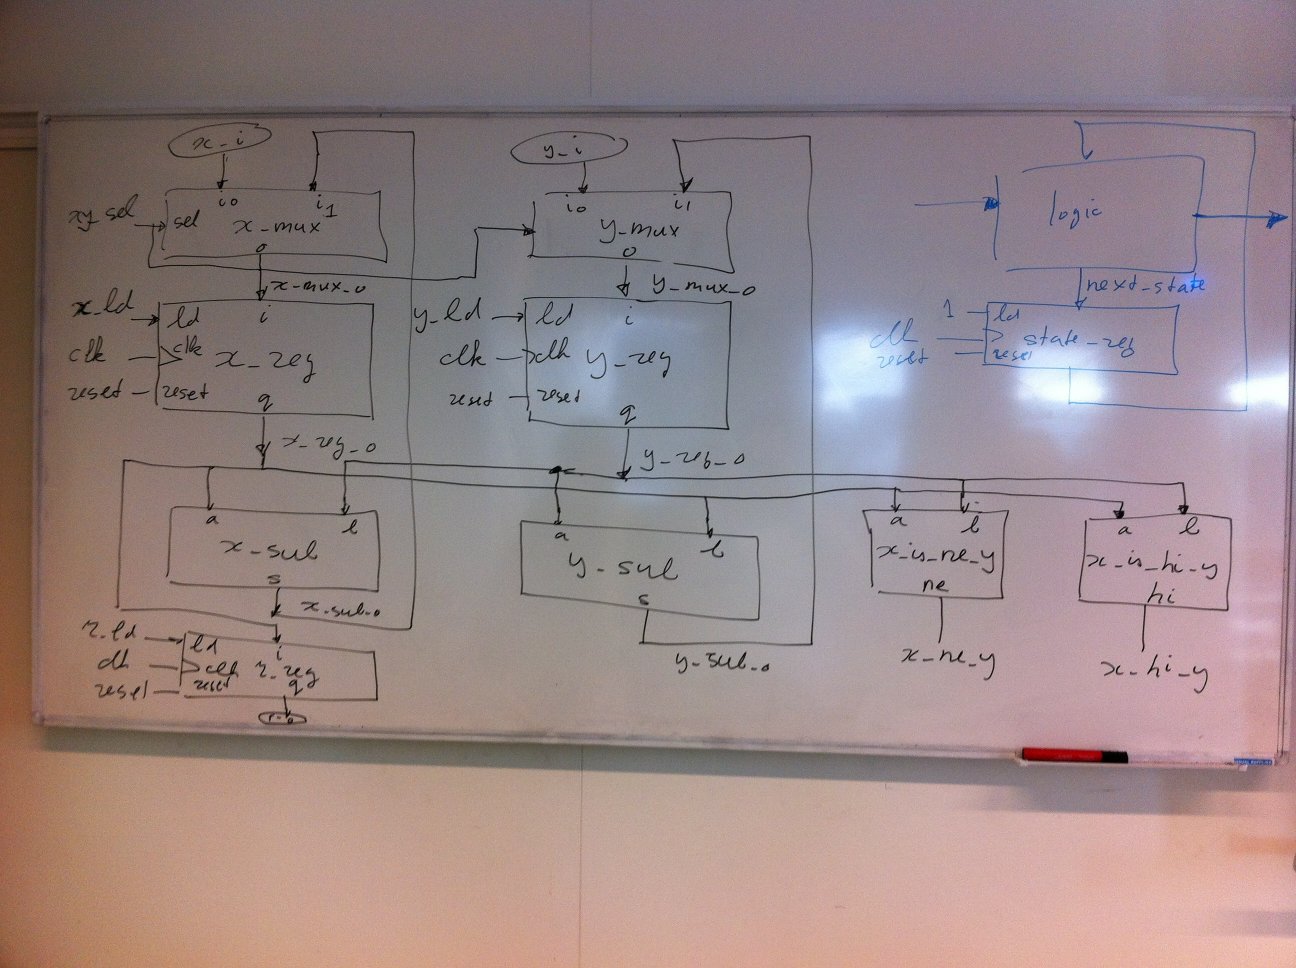 x_i
i0
i1
xy_sel
sel
x_mux
o
x_mux_o
x_ld
ld
i
clk
clk
x_reg
reset
reset
q
x_reg_o
a
b
x_sub
s
x_sub_o
r_ld
ld
i
clk
clk
r_reg
reset
reset
q
r_o
y_i
i0
i1
y_mux
o
y_mux_o
y_ld
ld
i
clk
clk
y_reg
reset
reset
q
y_reg_o
a
b
y_sub
s
y_sub_o
a
b
x_is_ne_y
ne
x_ne_y
a
b
x_is_hi_y
hi
x_hi_y
logic
next_state
1
ld
clk
state_reg
reset
reset